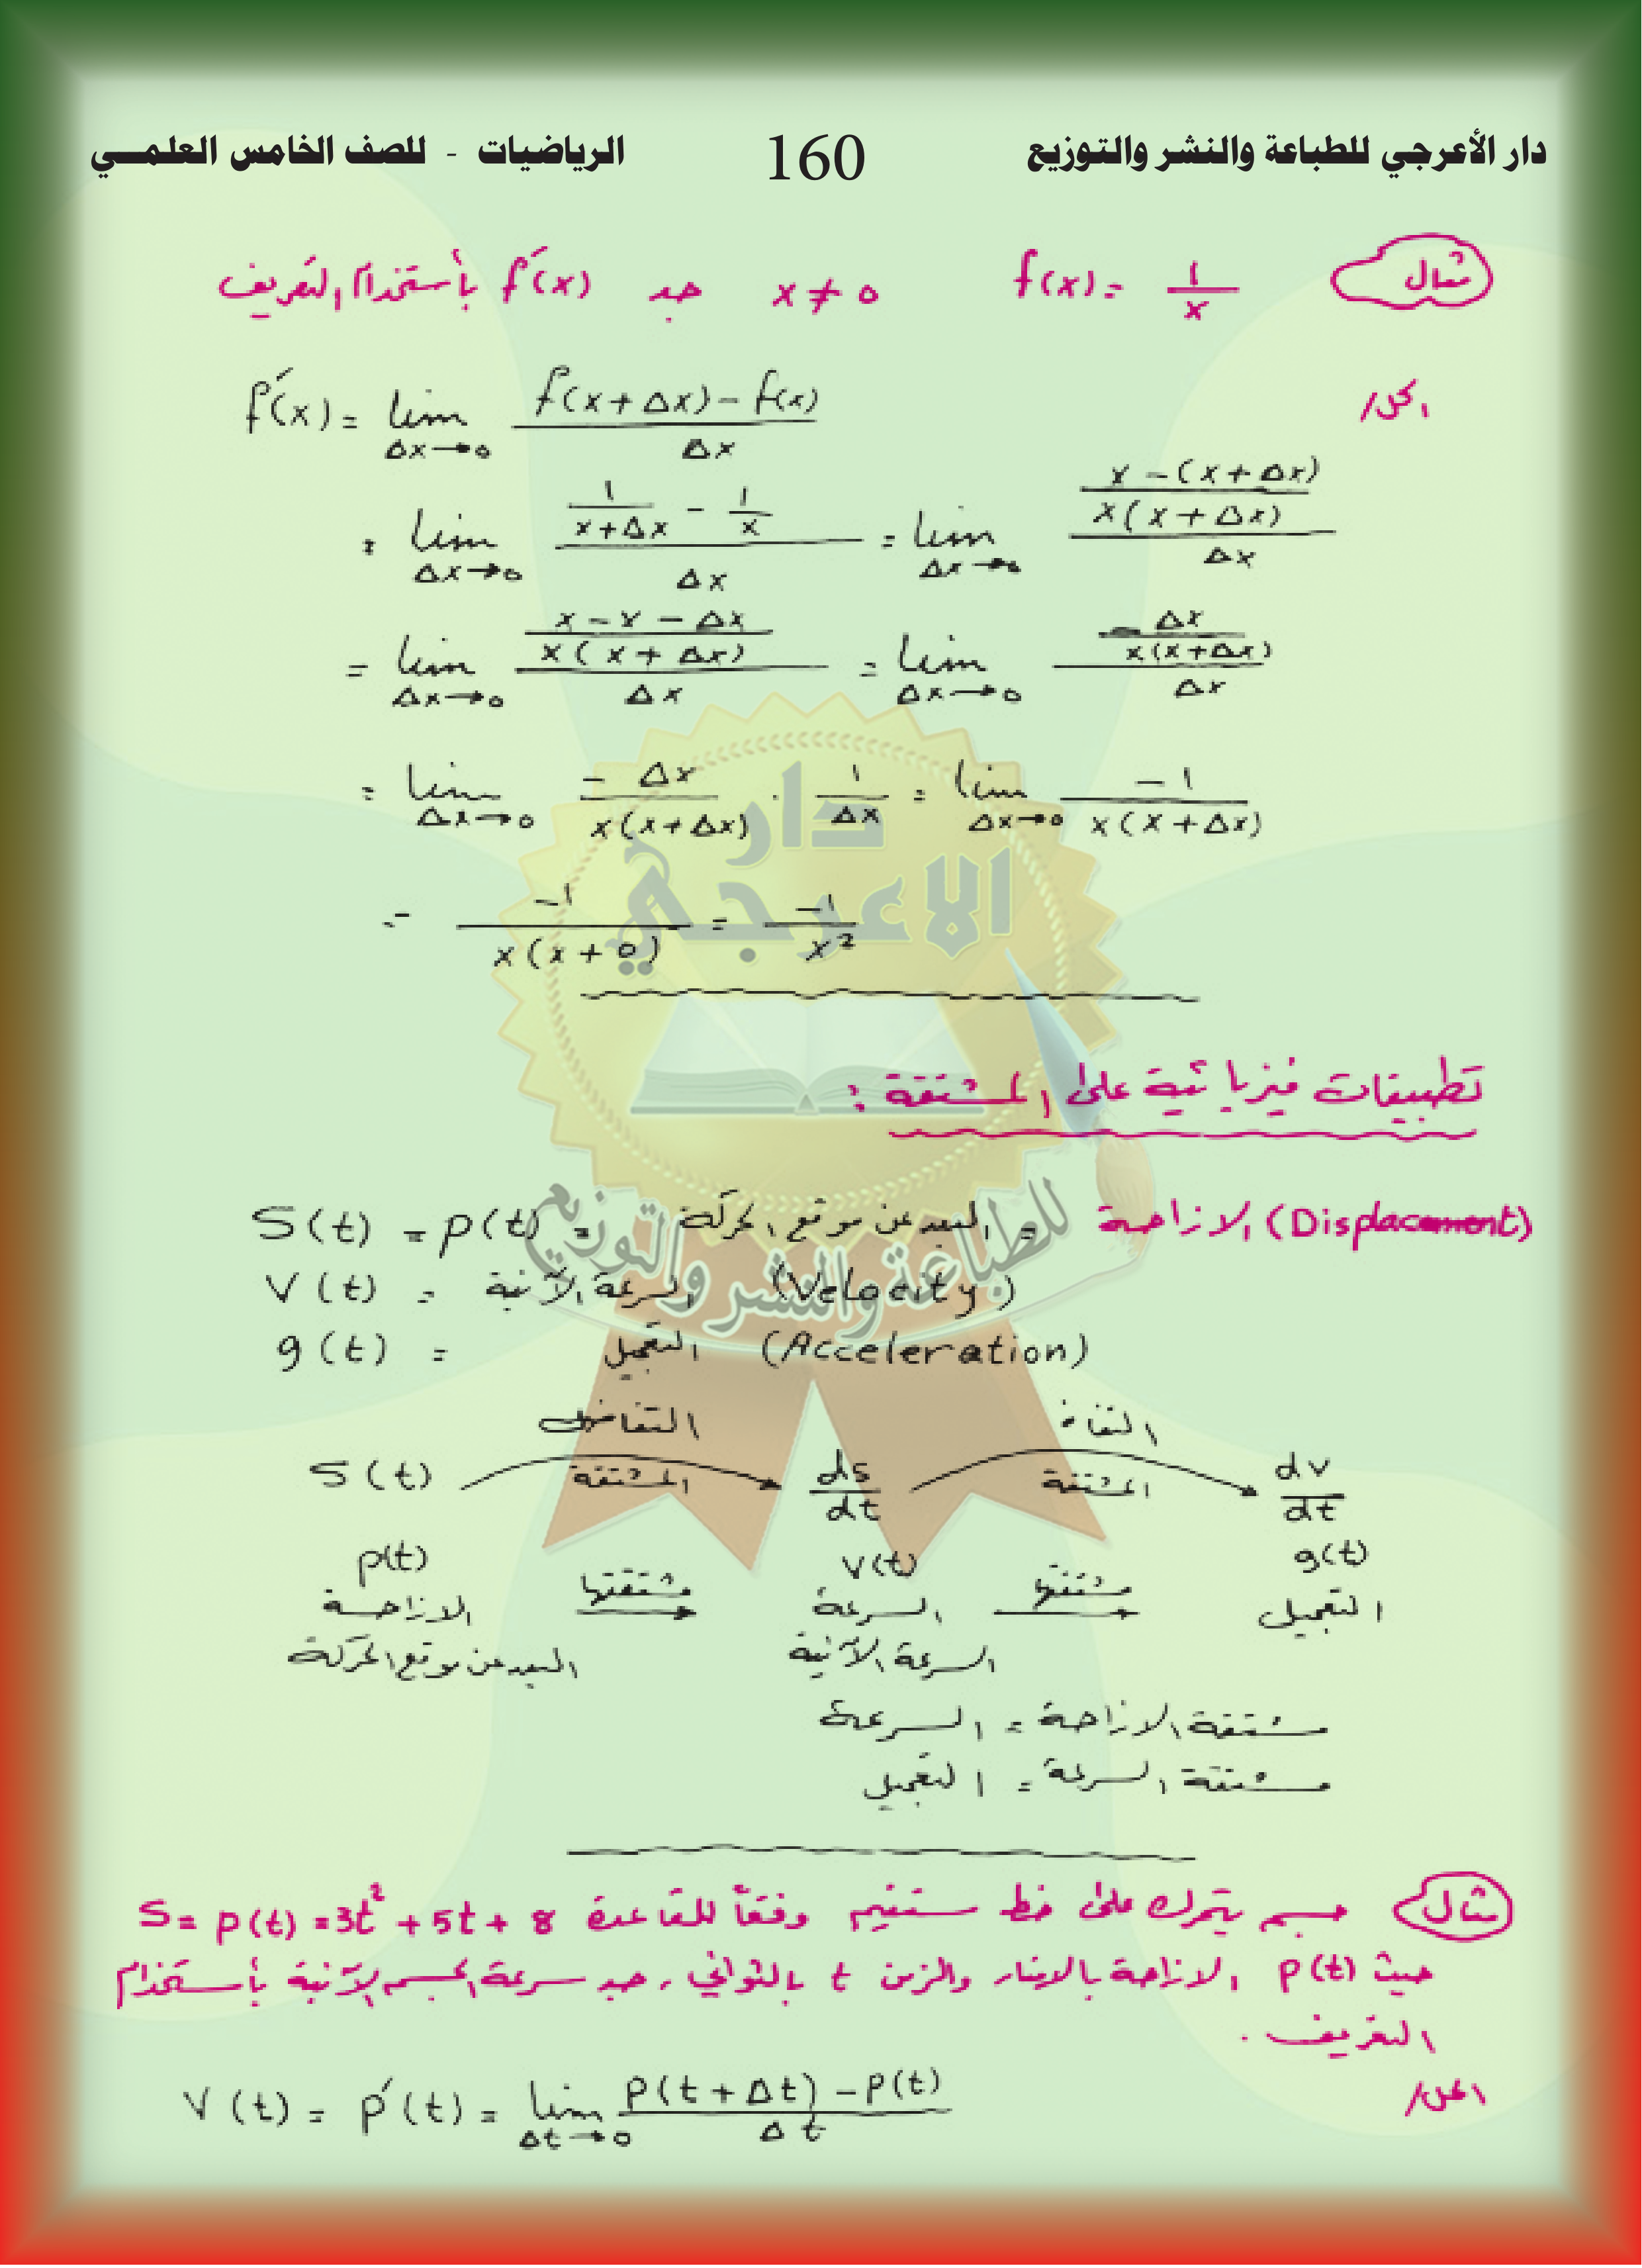 دار الأعرجي للطباعة والنشر والتوزيع 160 الرياضيات - للصف الخامس العلمـــي
مثال f(x) = 1/x x ≠ 0 جد f′(x) بأستخدام التعريف
الحل/
f′(x) = lim Δx→0 (f(x+Δx) - f(x))/Δx
= lim Δx→0 (1/(x+Δx) - 1/x)/Δx = lim Δx→0 ((x-(x+Δx))/(x(x+Δx)))/Δx
= lim Δx→0 ((x-x-Δx)/(x(x+Δx)))/Δx = lim Δx→0 (-Δx/(x(x+Δx)))/Δx
= lim Δx→0 -Δx/(x(x+Δx)) · 1/Δx = lim Δx→0 -1/(x(x+Δx))
= -1/(x(x+0)) = -1/x²
دار
الاعرجي
للطباعة والنشر والتوزيع
تطبيقات فيزيائية على المشتقة :
S(t) = p(t) = البعد عن موقع الحركة = الازاحة (Displacement)
V(t) = السرعة الآنية (Velocity)
g(t) = التعجيل (Acceleration)
التفاضل التفاضل
S(t) المشتقة ds/dt المشتقة dv/dt
p(t) مشتقتها V(t) مشتقتها g(t)
الازاحة السرعة التعجيل
البعد عن موقع الحركة السرعة الآنية
مشتقة الازاحة = السرعة
مشتقة السرعة = التعجيل
مثال جسم يتحرك على خط مستقيم وفقاً للقاعدة S = p(t) = 3t² + 5t + 8
حيث p(t) الازاحة بالامتار والزمن t بالثواني، جد سرعة الجسم الآنية بأستخدام
التعريف .
الحل/
V(t) = p′(t) = lim Δt→0 (p(t+Δt) - p(t))/Δt